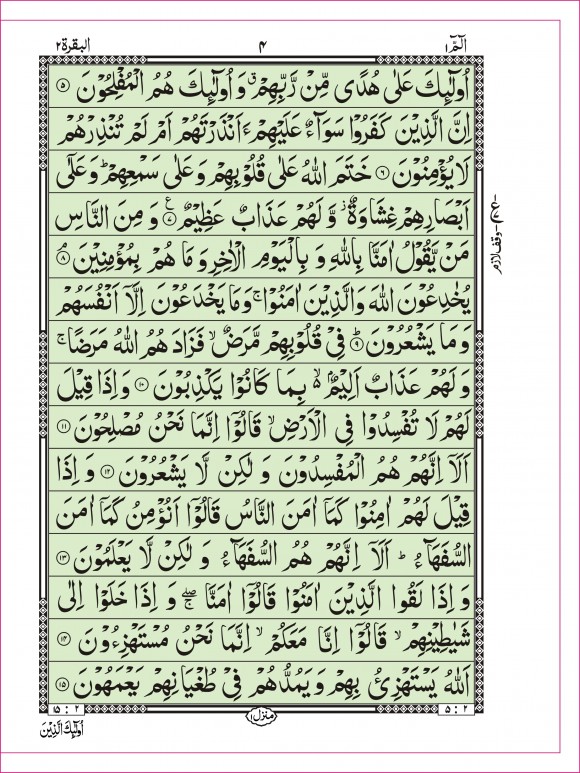 الٓمّٓ ۱ ۴ البقرة ۲
اُولٰٓئِكَ عَلٰى هُدًى مِّنْ رَّبِّهِمْ ۗ وَ اُولٰٓئِكَ هُمُ الْمُفْلِحُوْنَ ۝۵
اِنَّ الَّذِيْنَ كَفَرُوْا سَوَآءٌ عَلَيْهِمْ ءَاَنْذَرْتَهُمْ اَمْ لَمْ تُنْذِرْهُمْ
لَا يُؤْمِنُوْنَ ۝۶ خَتَمَ اللّٰهُ عَلٰى قُلُوْبِهِمْ وَ عَلٰى سَمْعِهِمْ ؕ وَ عَلٰٓى
اَبْصَارِهِمْ غِشَاوَةٌ ؗ وَّ لَهُمْ عَذَابٌ عَظِيْمٌ ۝۷ وَ مِنَ النَّاسِ
مَنْ يَّقُوْلُ اٰمَنَّا بِاللّٰهِ وَ بِالْيَوْمِ الْاٰخِرِ وَ مَا هُمْ بِمُؤْمِنِيْنَ ۝۸ۘ
يُخٰدِعُوْنَ اللّٰهَ وَ الَّذِيْنَ اٰمَنُوْا ۚ وَ مَا يَخْدَعُوْنَ اِلَّاۤ اَنْفُسَهُمْ
وَ مَا يَشْعُرُوْنَ ۝۹ؕ فِيْ قُلُوْبِهِمْ مَّرَضٌ ۙ فَزَادَهُمُ اللّٰهُ مَرَضًا ۚ
وَ لَهُمْ عَذَابٌ اَلِيْمٌۢ ۙ۬ بِمَا كَانُوْا يَكْذِبُوْنَ ۝۱۰ وَ اِذَا قِيْلَ
لَهُمْ لَا تُفْسِدُوْا فِي الْاَرْضِ ۙ قَالُوْۤا اِنَّمَا نَحْنُ مُصْلِحُوْنَ ۝۱۱
اَلَاۤ اِنَّهُمْ هُمُ الْمُفْسِدُوْنَ وَ لٰكِنْ لَّا يَشْعُرُوْنَ ۝۱۲ وَ اِذَا
قِيْلَ لَهُمْ اٰمِنُوْا كَمَاۤ اٰمَنَ النَّاسُ قَالُوْۤا اَنُؤْمِنُ كَمَاۤ اٰمَنَ
السُّفَهَآءُ ؕ اَلَاۤ اِنَّهُمْ هُمُ السُّفَهَآءُ وَ لٰكِنْ لَّا يَعْلَمُوْنَ ۝۱۳
وَ اِذَا لَقُوا الَّذِيْنَ اٰمَنُوْا قَالُوْۤا اٰمَنَّا ۖۚ وَ اِذَا خَلَوْا اِلٰى
شَيٰطِيْنِهِمْ ۙ قَالُوْۤا اِنَّا مَعَكُمْ ۙ اِنَّمَا نَحْنُ مُسْتَهْزِءُوْنَ ۝۱۴
اَللّٰهُ يَسْتَهْزِئُ بِهِمْ وَ يَمُدُّهُمْ فِيْ طُغْيَانِهِمْ يَعْمَهُوْنَ ۝۱۵
۲ : ۵ منزل ۱ ۲ : ۱۵
اُولٰٓئِكَ الَّذِيْنَ
وقف لازم